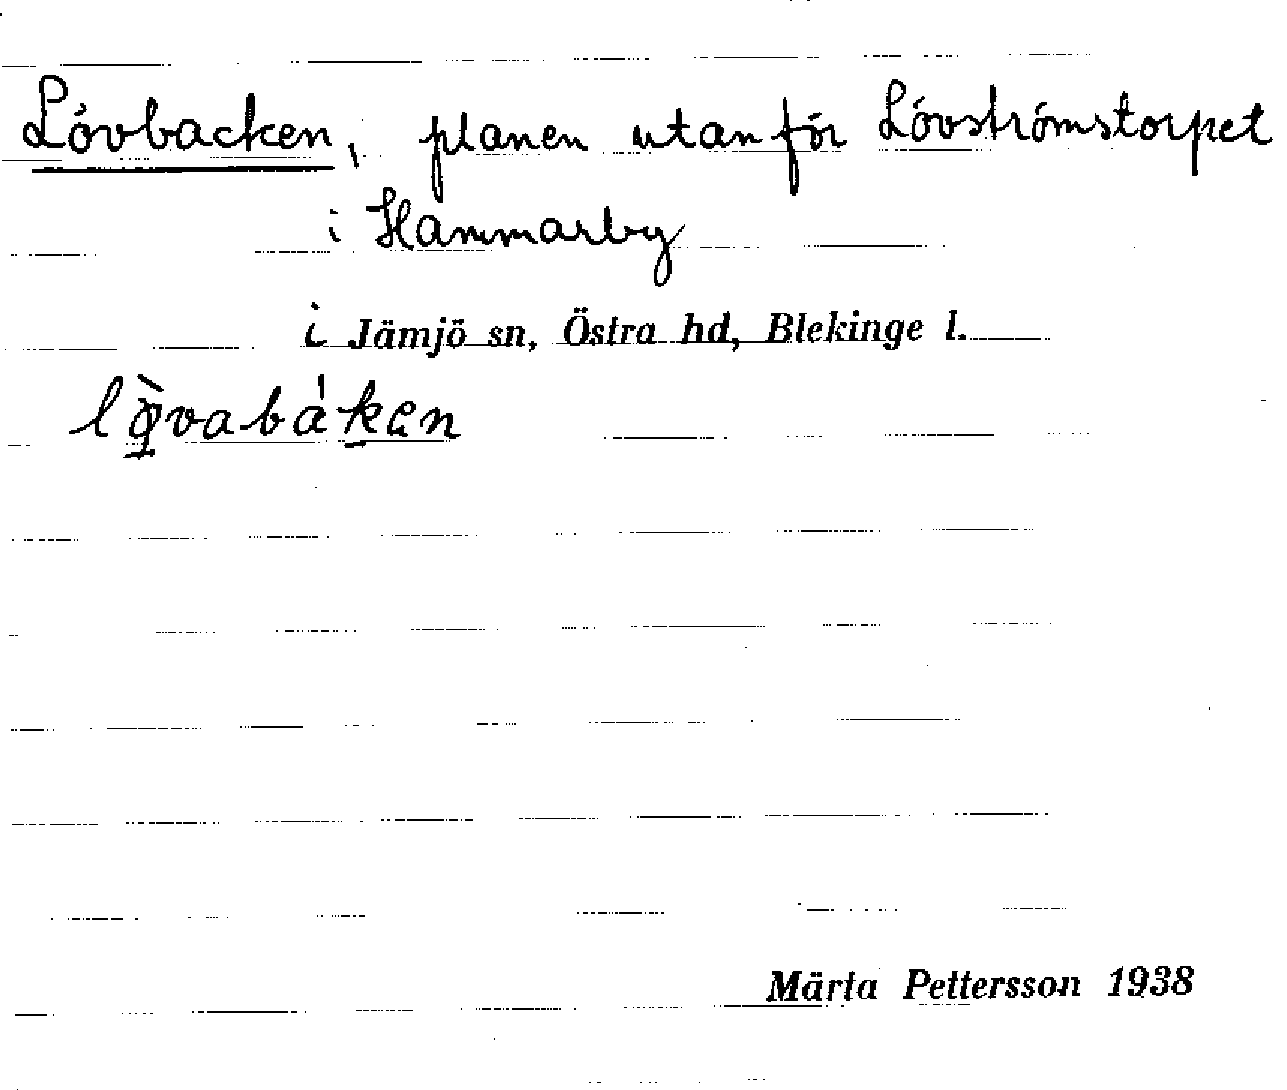 Lövbacken, planen utanför Lövströmstorpet
i Hammarby
i Jämjö sn, Östra hd, Blekinge l.
lø̀vabáken
Märta Pettersson 1938